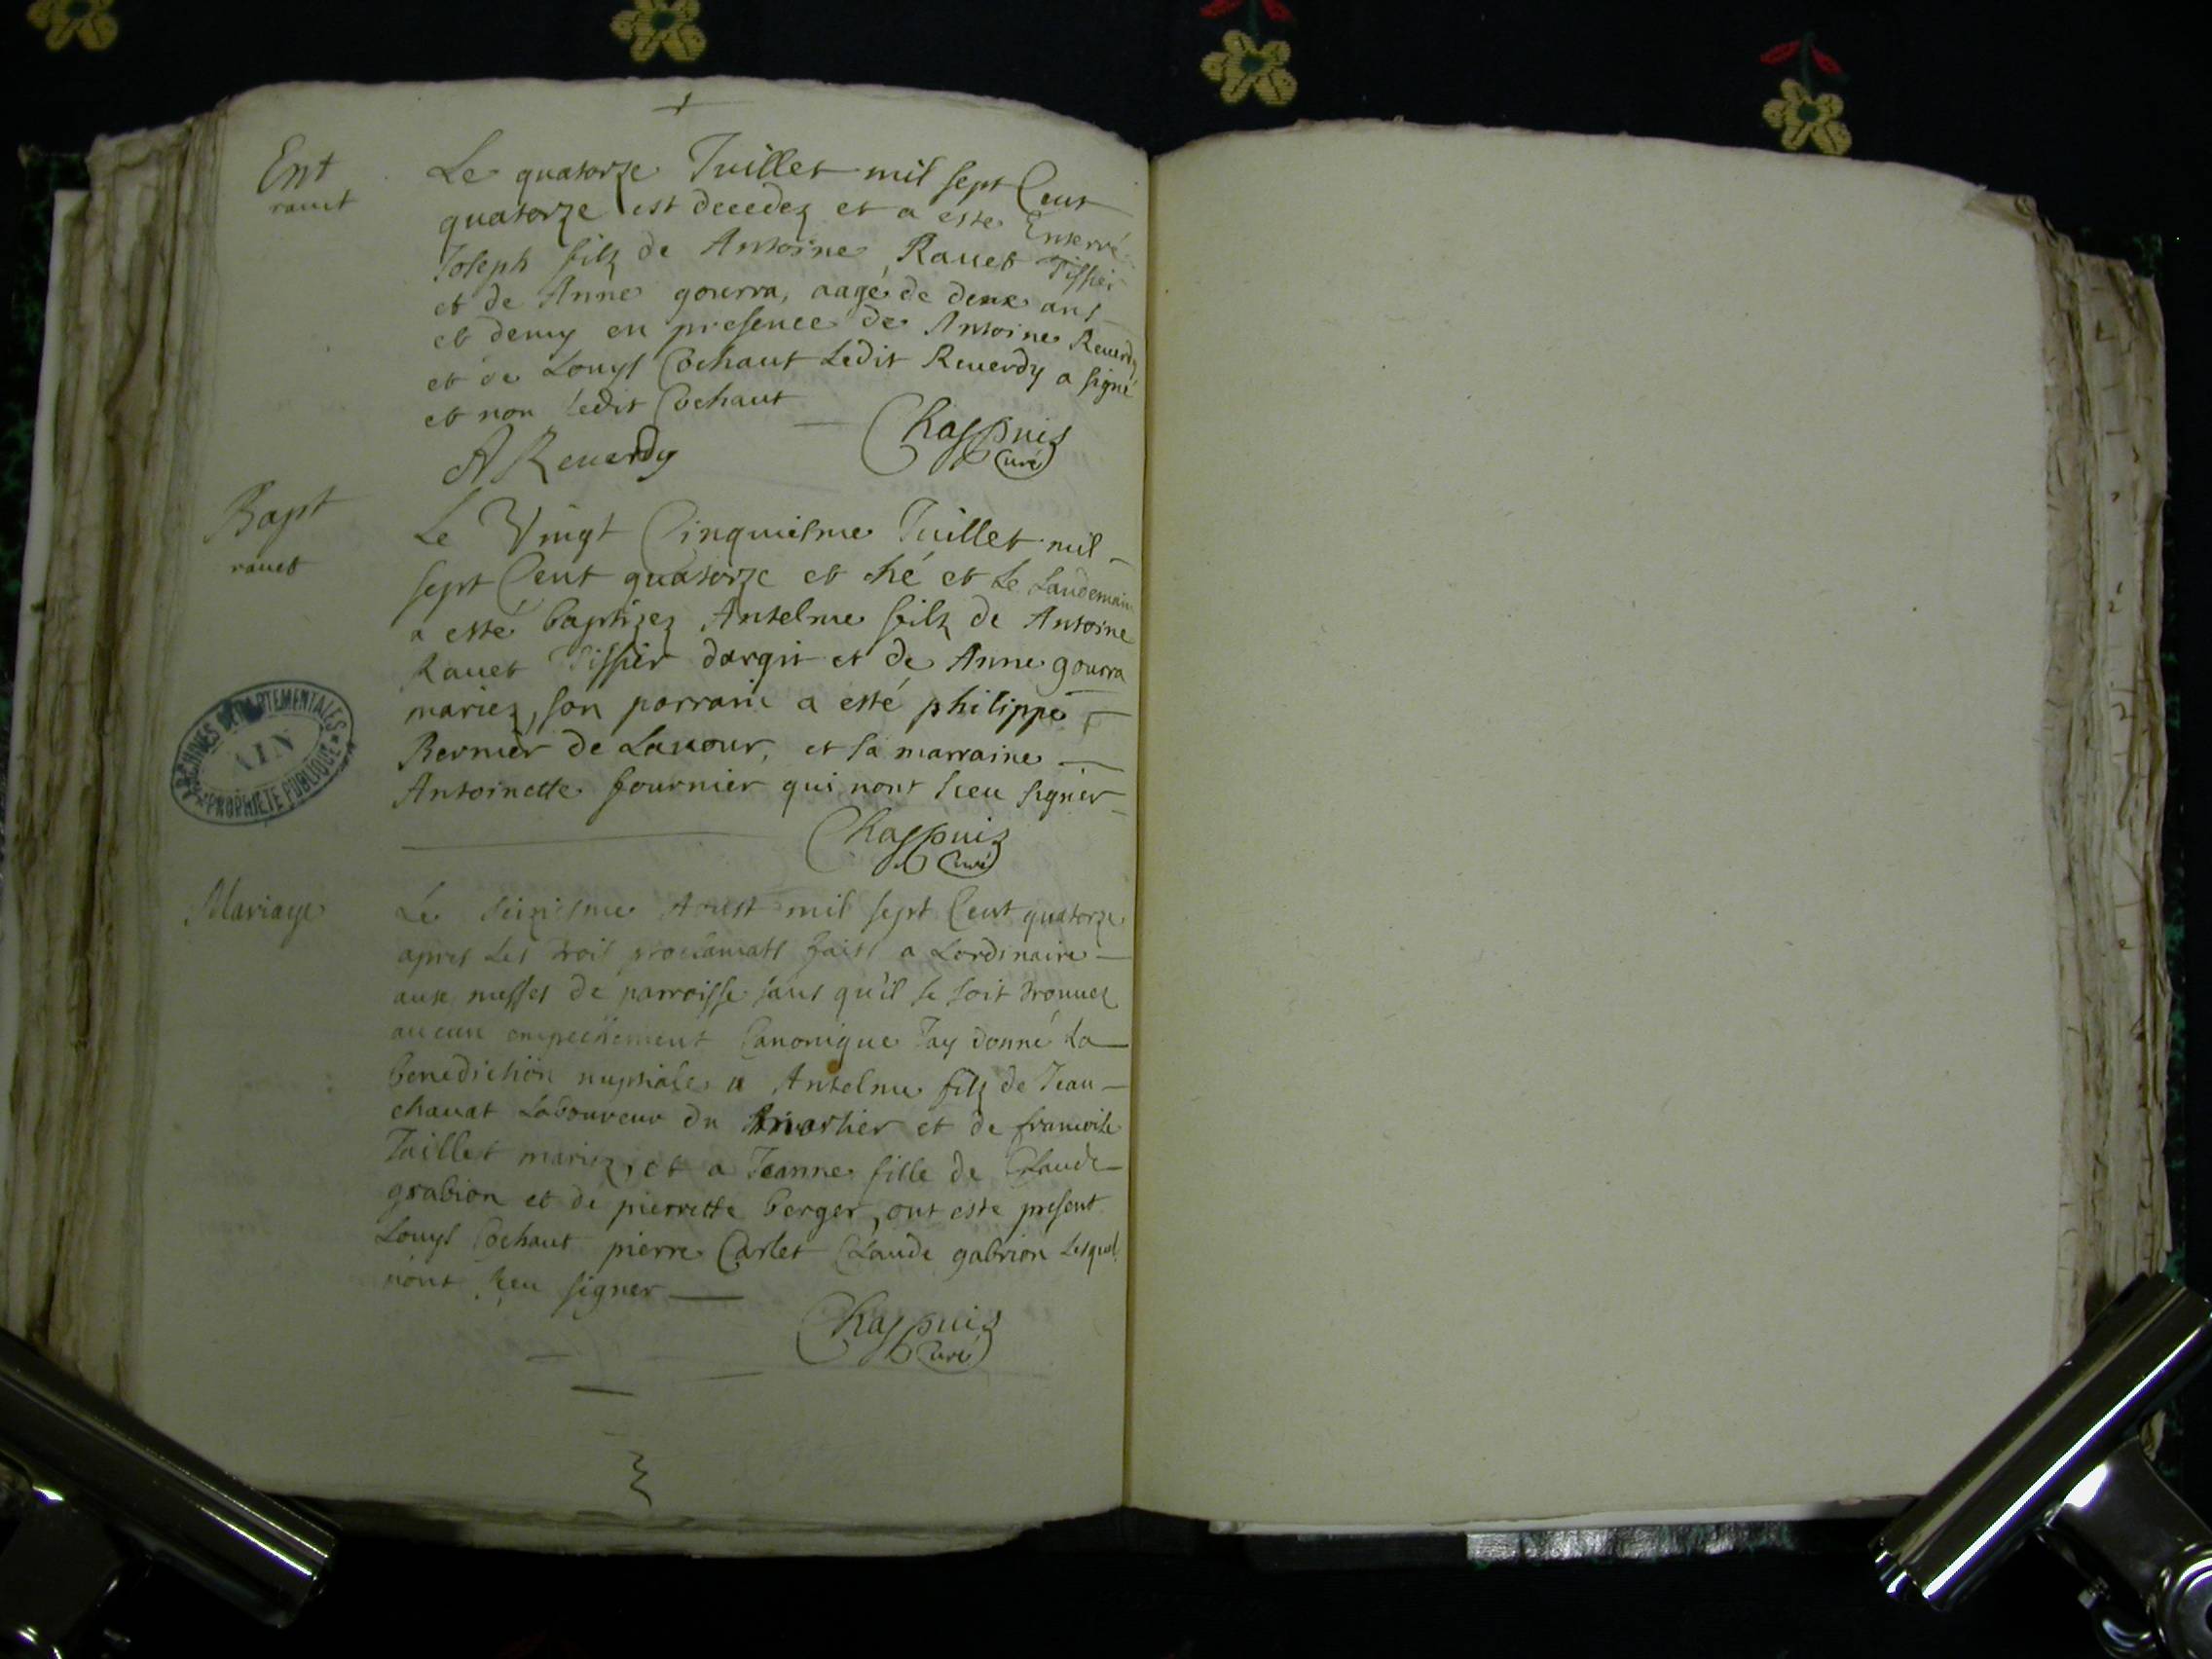 Ent
rauet
Le quatorze Juillet mil sept Cent
quatorze est decedez et a este Enterré
Joseph filz de Antoine Rauet Tissier
et de Anne gourra, aagé de deux ans
et demy en presence de Antoine Reuerdy
et de Louys Cochaut Ledit Reuerdy a signé
et non ledit Cochaut
Chappuis
Curé
A Reuerdy
Bapt
rauet
Le Vingt Cinquiesme Juillet mil
sept Cent quatorze et né et Le Landemain
a esté baptizez Antelme filz de Antoine
Rauet Tissier dargit et de Anne gourra
mariez, son parrain a esté philippe
Bernier de Lauour, et sa marraine
Antoinette fournier qui nont sceu signer
Chappuis
Curé
ARCHIVES DÉPARTEMENTALES
AIN
PROPRIÉTÉ PUBLIQUE
Mariage
Le seiziesme Aoust mil sept Cent quatorze
apres Les trois proclamats faits a Lordinaire
aux messes de parroisse sans qu'il se soit trouuez
aucun empechement Canonique Jay donné La
benediction nuptiale a Antelme filz de Jean
chauat Laboureur du et de francoise
Taillet mariez, et a Jeanne fille de Claude
grabion et de pierrette berger, ont este present
Louys Cochaut pierre Carlet Claude gabrion Lesquel
nont sceu signer
Chappuis
Curé